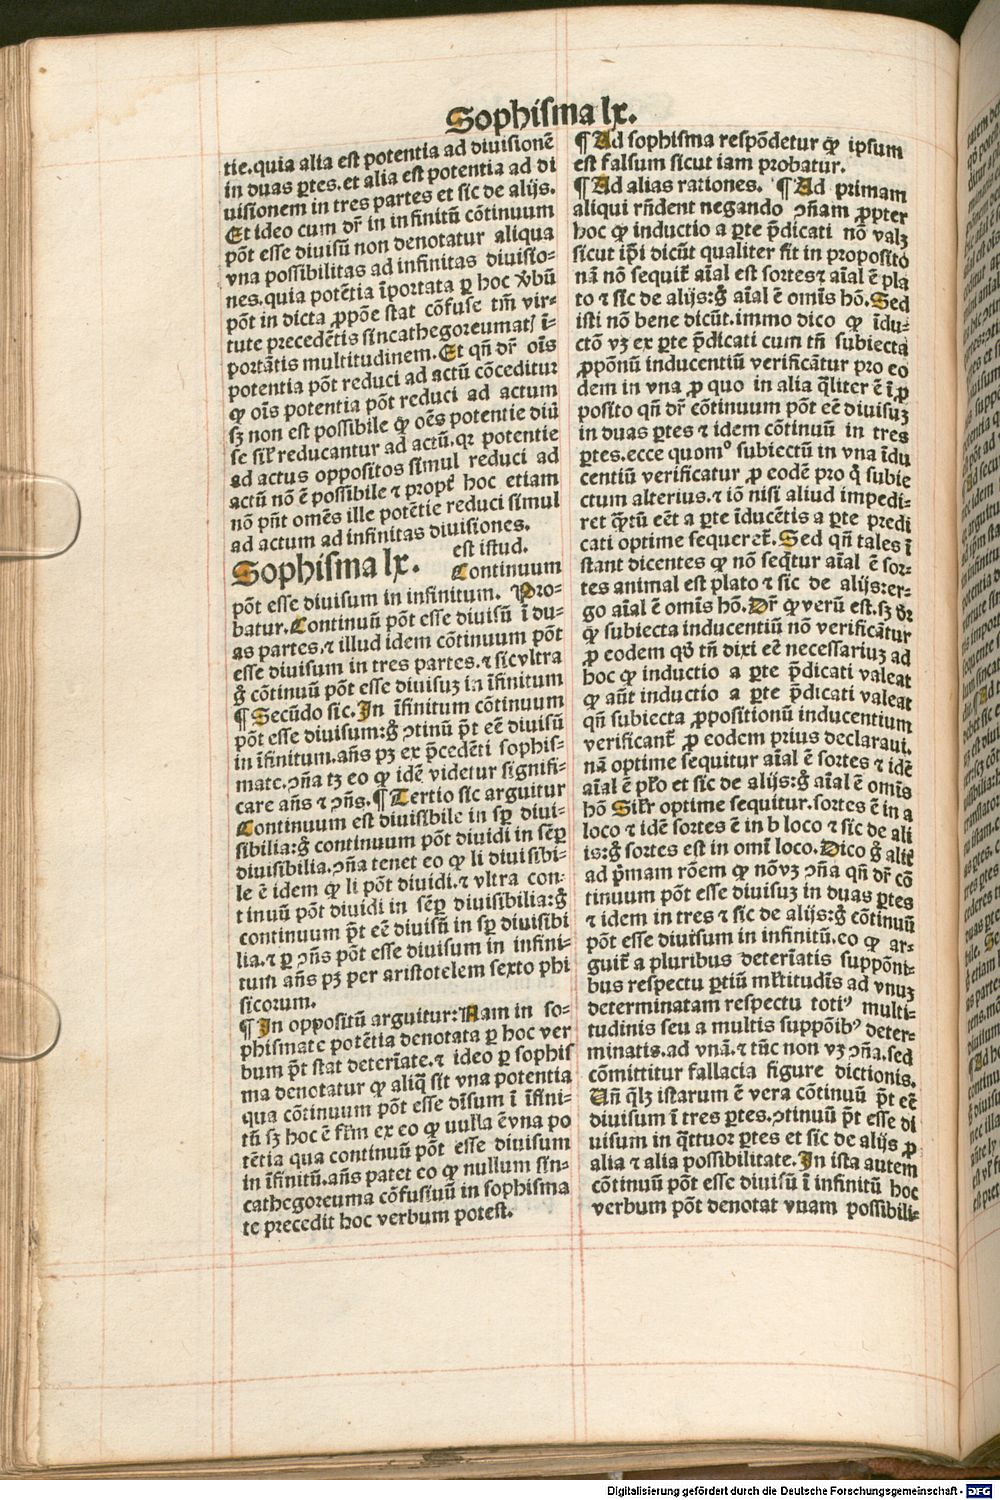 Sophisma lx.
tie. quia alia est potentia ad diuisionē
in duas ꝑtes. et alia est potentia ad di
uisionem in tres partes et sic de alijs.
Et ideo cum dr̄ in infinitū cōtinuum
pōt esse diuisū non denotatur aliqua
vna possibilitas ad infinitas diuisio-
nes. quia potētia īportata ꝑ hoc v̄bū
pōt in dicta ꝓpōe stat cōfuse tm̄ vir-
tute precedētis sincathegoreumatꝭ ī-
portātis multitudinem. Et qñ dr̄ oīs
potentia pōt reduci ad actū cōceditur
ꝙ oīs potentia pōt reduci ad actum
sꝫ non est possibile ꝙ oēs potentie diū
se sil̄ reducantur ad actū. qꝛ potentie
ad actus oppositos simul reduci ad
actū nō ē possibile ⁊ propt̄ hoc etiam
nō pn̄t omēs ille potētie reduci simul
ad actum ad infinitas diuisiones.
est istud.
Sophisma lx. Continuum
pōt esse diuisum in infinitum. Pro-
batur. Continuū pōt esse diuisū ī du-
as partes. ⁊ illud idem cōtinuum pōt
esse diuisum in tres partes. ⁊ sic vltra
g̊ cōtinuū pōt esse diuisuꝫ in īfinitum
¶ Secūdo sic. In īfinitum cōtinuum
pōt esse diuisum: g̊ ꝯtinū p̄t eē diuisū
in īfinitum. añs pꝫ ex p̄cedēti sophis-
mate. ꝯña tꝫ eo ꝙ idē videtur signifi-
care añs ⁊ ꝯñs. ¶ Tertio sic arguitur
Continuum est diuisibile in sꝑ diui-
sibilia: g̊ continuum pōt diuidi in sēꝑ
diuisibilia. ꝯña tenet eo ꝙ li diuisibi-
le ē idem ꝙ li pōt diuidi. ⁊ vltra con-
tinuū pōt diuidi in sēꝑ diuisibilia: g̊
continuum p̄t eē diuisū in sꝑ diuisibi
lia. ⁊ ꝑ ꝯñs pōt esse diuisum in infini-
tum añs pꝫ per aristotelem sexto phi
sicorum.
¶ In oppositū arguitur: Nam in so-
phismate potētia denotata ꝑ hoc ver
bum p̄t stat deterīate. ⁊ ideo ꝑ sophis
ma denotatur ꝙ aliq̄ sit vna potentia
qua cōtinuum pōt esse dīsum ī īfini-
tū sꝫ hoc ē fīm ex eo ꝙ nulla ē vna po
tētia qua continuū pōt esse diuisum
in īfinitū. añs patet eo ꝙ nullum sin-
cathegoreuma cōfusiuū in sophisma
te precedit hoc verbum potest.
¶ Ad sophisma respōdetur ꝙ ipsum
est falsum sicut iam probatur.
¶ Ad alias rationes. ¶ Ad primam
aliqui rñdent negando ꝯñam ꝓpter
hoc ꝙ inductio a ꝑte p̄dicati nō valꝫ
sicut ip̄i dicūt qualiter fit in proposito
nā nō sequit̄ aīal est sortes ⁊ aīal ē pla
to ⁊ sic de alijs: g̊ aīal ē omīs hō. Sed
isti nō bene dicūt. immo dico ꝙ īdu-
ctō vꝫ ex ꝑte p̄dicati cum tñ subiecta
ꝓpōnū inducentiū verificātur pro eo
dem in vna ꝓ quo in alia q̄liter ē ī ꝓ
posito qñ dr̄ cōtinuum pōt eē diuisuꝫ
in duas ꝑtes ⁊ idem cōtinuū in tres
ꝑtes. ecce quomo° subiectū in vna īdu
centiū verificatur ꝓ eodē pro q̊ subie
ctum alterius. ⁊ iō nisi aliud impedi-
ret q̄tū eēt a ꝑte īducētis a ꝑte predi
cati optime sequeret̄. Sed qñ tales ī
stant dicentes ꝙ nō seq̄tur aīal ē sor-
tes animal est plato ⁊ sic de alijs: er-
go aīal ē omīs hō. Dr̄ ꝙ verū est. sꝫ dr̄
ꝙ subiecta inducentiū nō verificātur
ꝓ eodem qd̄ tñ dixi eē necessariuꝫ ad
hoc ꝙ inductio a ꝑte p̄dicati valeat
ꝙ aūt inductio a ꝑte p̄dicati valeat
qñ subiecta ꝓpositionū inducentium
verificant̄ ꝓ eodem prius declaraui.
nā optime sequitur aīal ē sortes ⁊ idē
aīal ē plto et sic de alijs: g̊ aīal ē omīs
hō Silr̄ optime sequitur. sortes ē in a
loco ⁊ idē sortes ē in b loco ⁊ sic de ali
is: g̊ sortes est in omī loco. Dico g̊ alit̄
ad p̄mam rōem ꝙ nō vꝫ ꝯña qñ dr̄ cō
tinuum pōt esse diuisuꝫ in duas ꝑtes
⁊ idem in tres ⁊ sic de alijs: g̊ cōtinuū
pōt esse diuisum in infinitū. eo ꝙ ar-
guit̄ a pluribus deterīatis suppōni-
bus respectu ꝑtiū ml̄titudīs ad vnuꝫ
determinatam respectu totiꝰ multi-
tudinis seu a multis suppōibꝰ deter-
minatis. ad vnā. ⁊ tūc non vꝫ ꝯña. sed
cōmittitur fallacia figure dictionis.
Añ q̄lꝫ istarum ē vera cōtinuū p̄t eē
diuisum ī tres ꝑtes. ꝯtinuū p̄t esse di
uisum in q̄ttuor ꝑtes et sic de alijs ꝓ
alia ⁊ alia possibilitate. In ista autem
cōtinuū pōt esse diuisū ī infinitū hoc
verbum pōt denotat vnam possibili-
Digitalisierung gefördert durch die Deutsche Forschungsgemeinschaft - DFG